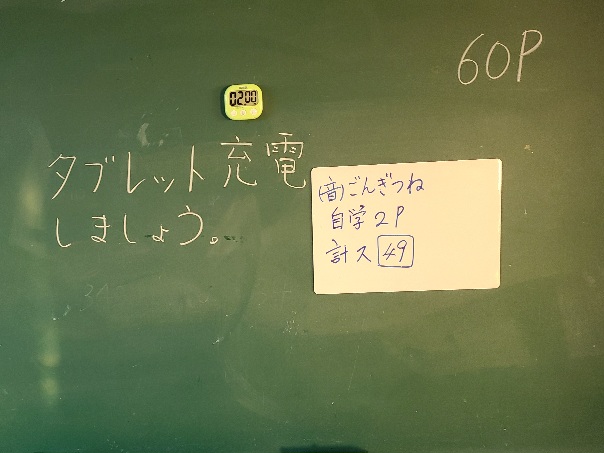 60P
02:00
タブレット充電
しましょう。
(音)ごんぎつね
自学2P
計ス49